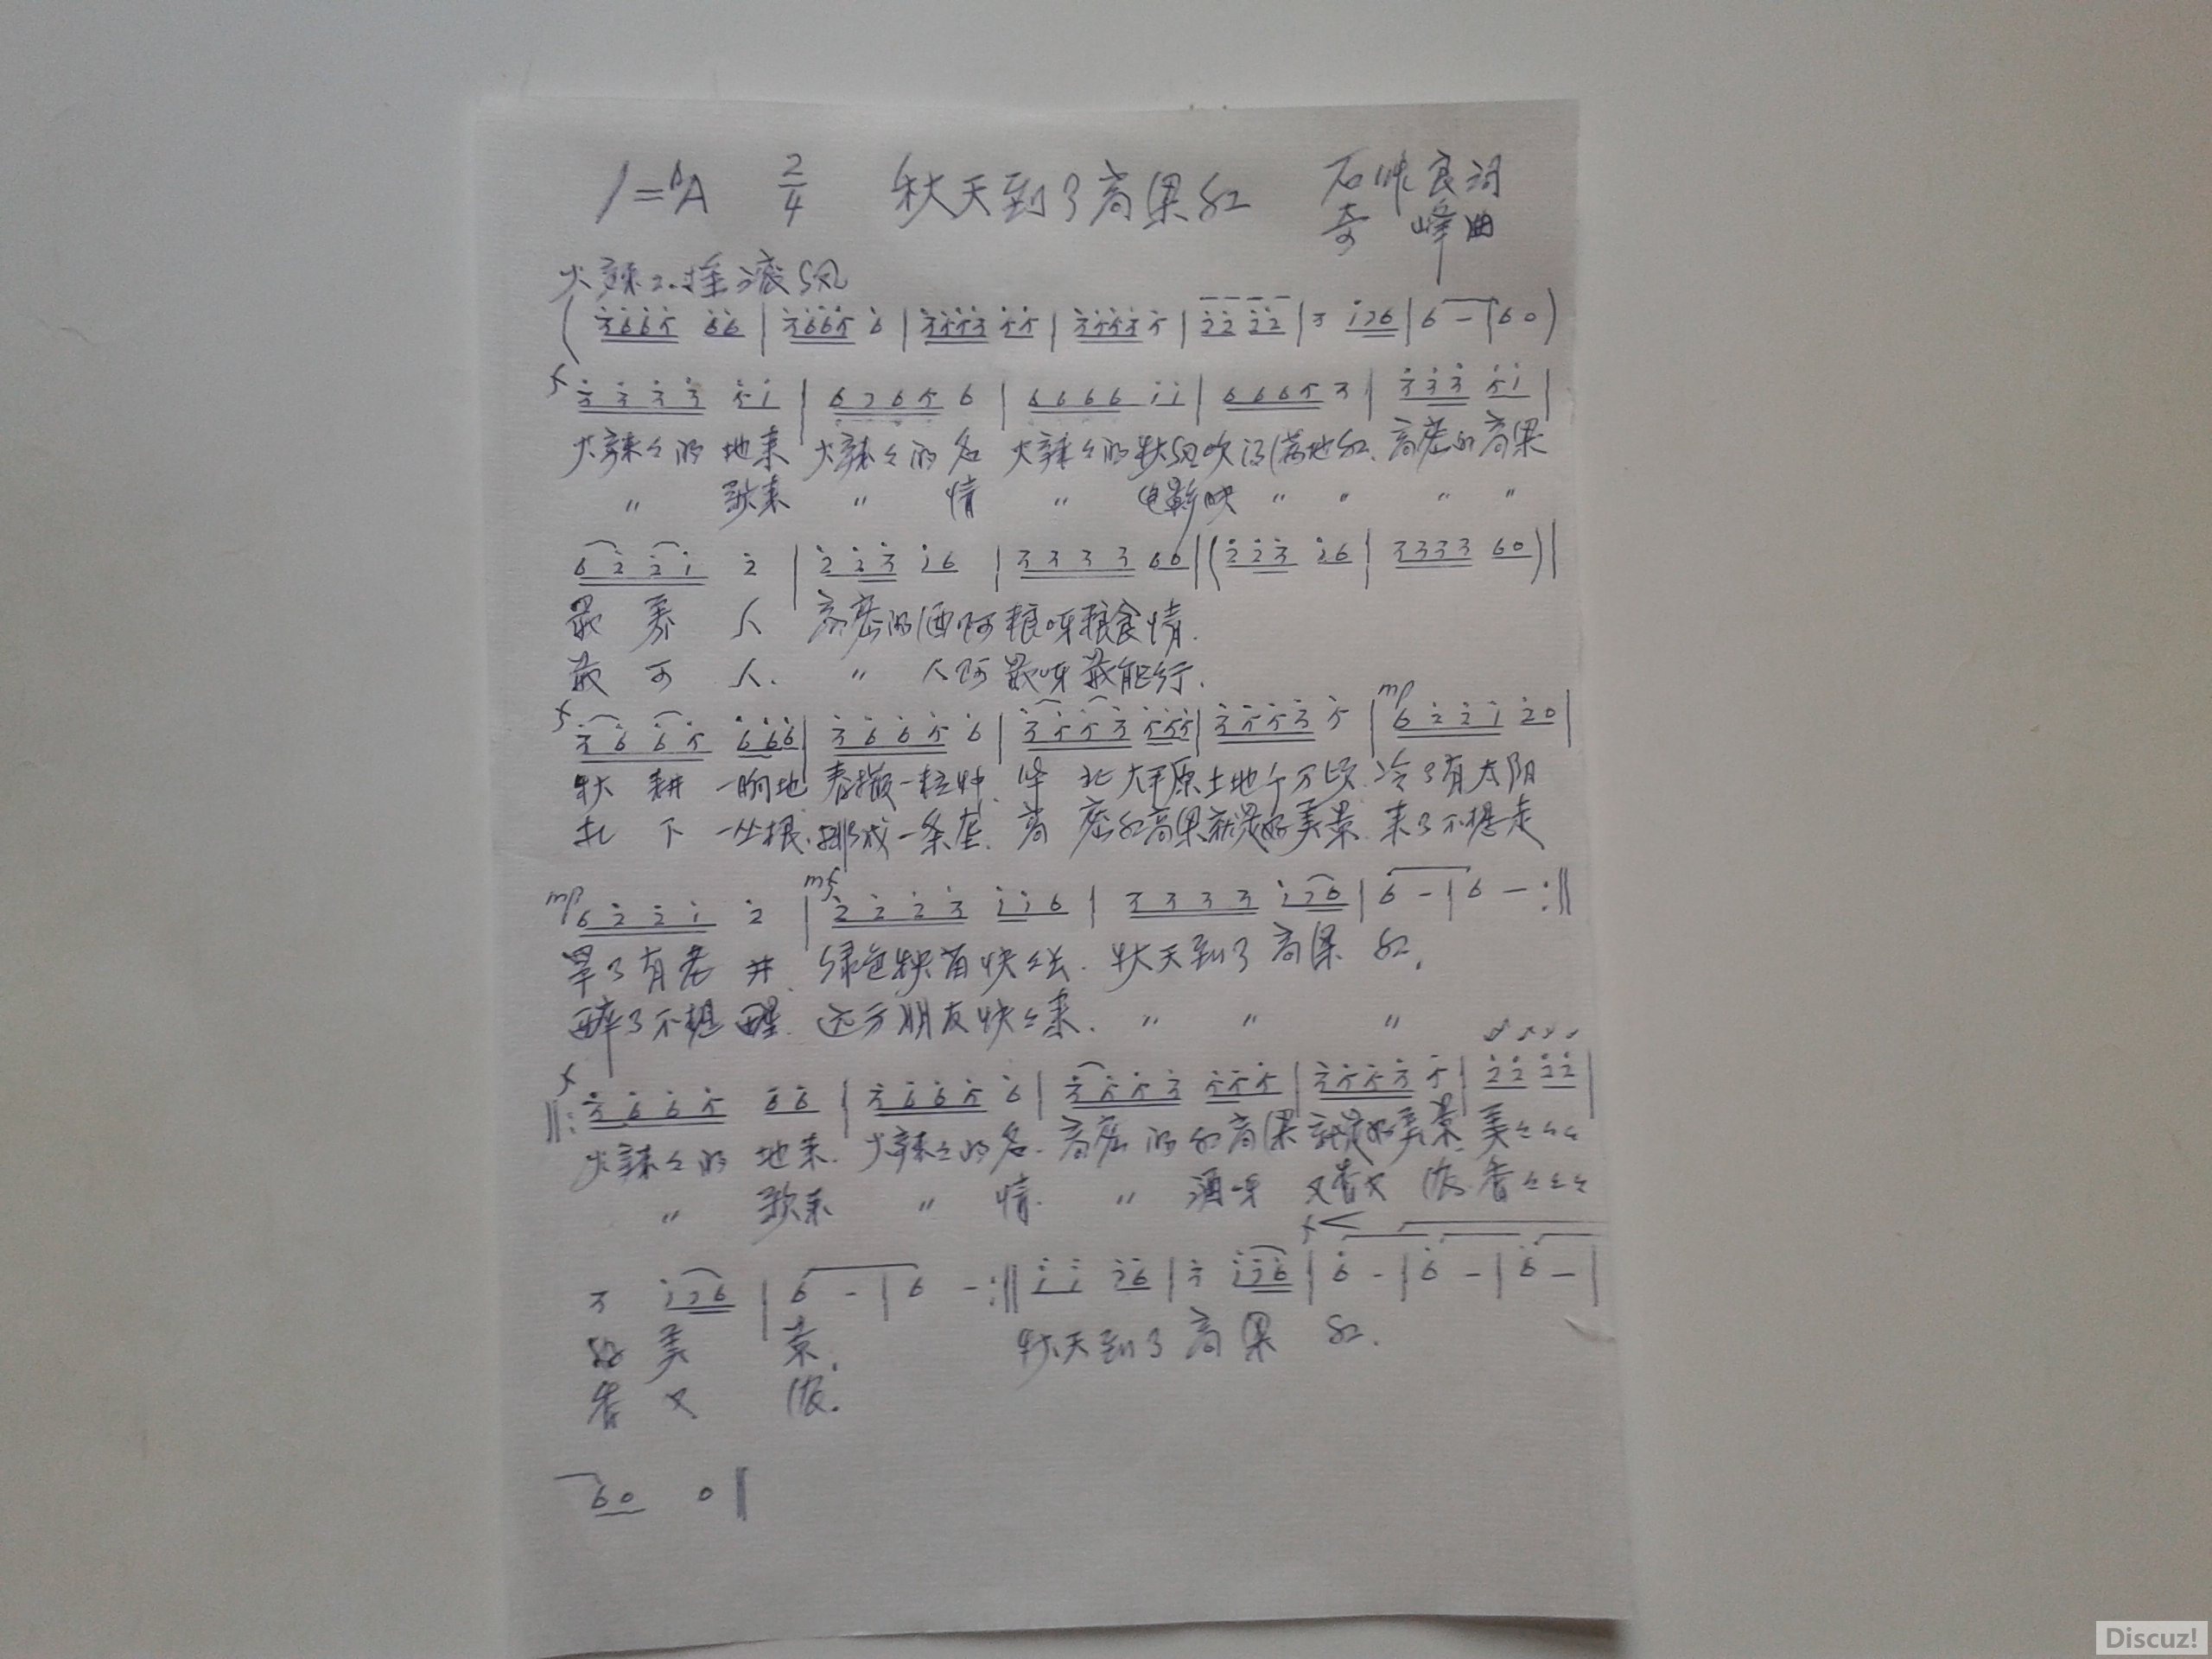 1=♭A 2/4 秋天到了高粱红 石 良词
奇 峰曲
火辣々.摇滚风
(3̇6̇6̇5̇ 6̇6̇|3̇6̇6̇5̇ 6̇|3̇5̇5̇3̇ 5̇5̇|3̇5̇5̇3̇ 5̇|2̇2̇ 2̇2̇|3 1̇76|6 - |60)
f 3̇ 3̇ 3̇ 3̇ 5̇1̇|6 7 6 5 6|6 6 6 6 1̇1̇|6 6 6 5 3|3̇ 3̇ 3̇ 5̇1̇|
火辣々的 地来 火辣々的 名 火辣々的秋风吹得满地红. 高密的高粱
〃 歌来 〃 情 〃 电影映 〃 〃 〃 〃
6 2̇ 2̇ 1̇ 2̇|2̇ 2̇ 3̇ 1̇6|3 3 3 3 60|(2̇ 2̇ 3̇ 1̇6|3333 60)|
最 美 人 高密的酒啊粮呀粮食情.
最 可 人. 〃 人啊最呀最能行.
f 3̇ 6̇ 6̇ 5̇ 6̇6̇6̇|3̇ 6̇ 6̇ 5̇ 6̇|3̇ 5̇ 5̇ 3̇ 5̇5̇5̇|3̇ 5̇ 5̇ 3̇ 5̇|mp 6 2̇ 2̇ 1̇ 2̇0|
秋 耕 一晌地 春撒一粒种. 华 北大平原土地千万顷. 冷了有太阳
扎 下 一丛根. 挪成一条垄. 高 密红高粱就是好美景. 来了不想走
mp 6 2̇ 2̇ 1̇ 2̇|mf 2̇ 2̇ 2̇ 3̇ 1̇1̇6|3 3 3 3 1̇76|6 - |6 - :‖
旱了有老 井. 绿色秧苗快々长. 秋天到了 高粱 红.
醉了不想 醒. 远方朋友快々来. 〃 〃 〃
f ‖:3̇ 6̇ 6̇ 5̇ 6̇6̇|3̇ 6̇ 6̇ 5̇ 6̇|3̇ 5̇ 5̇ 3̇ 5̇5̇5̇|3̇ 5̇ 5̇ 3̇ 5̇|2̇2̇ 2̇2̇|
火辣々的 地来. 火辣々的名. 高密的红高粱就是好美景. 美々々々
〃 歌来 〃 情. 〃 酒呀 又香又 浓. 香々々々
3 1̇76|6 - |6 - :‖1̇ 1̇ 2̇6|3̇ 1̇7̇6̇|f 6̇ - |6̇ - |6̇ - |
好 美 景. 秋天到了 高粱 红.
香 又 浓.
60 0‖
Discuz!